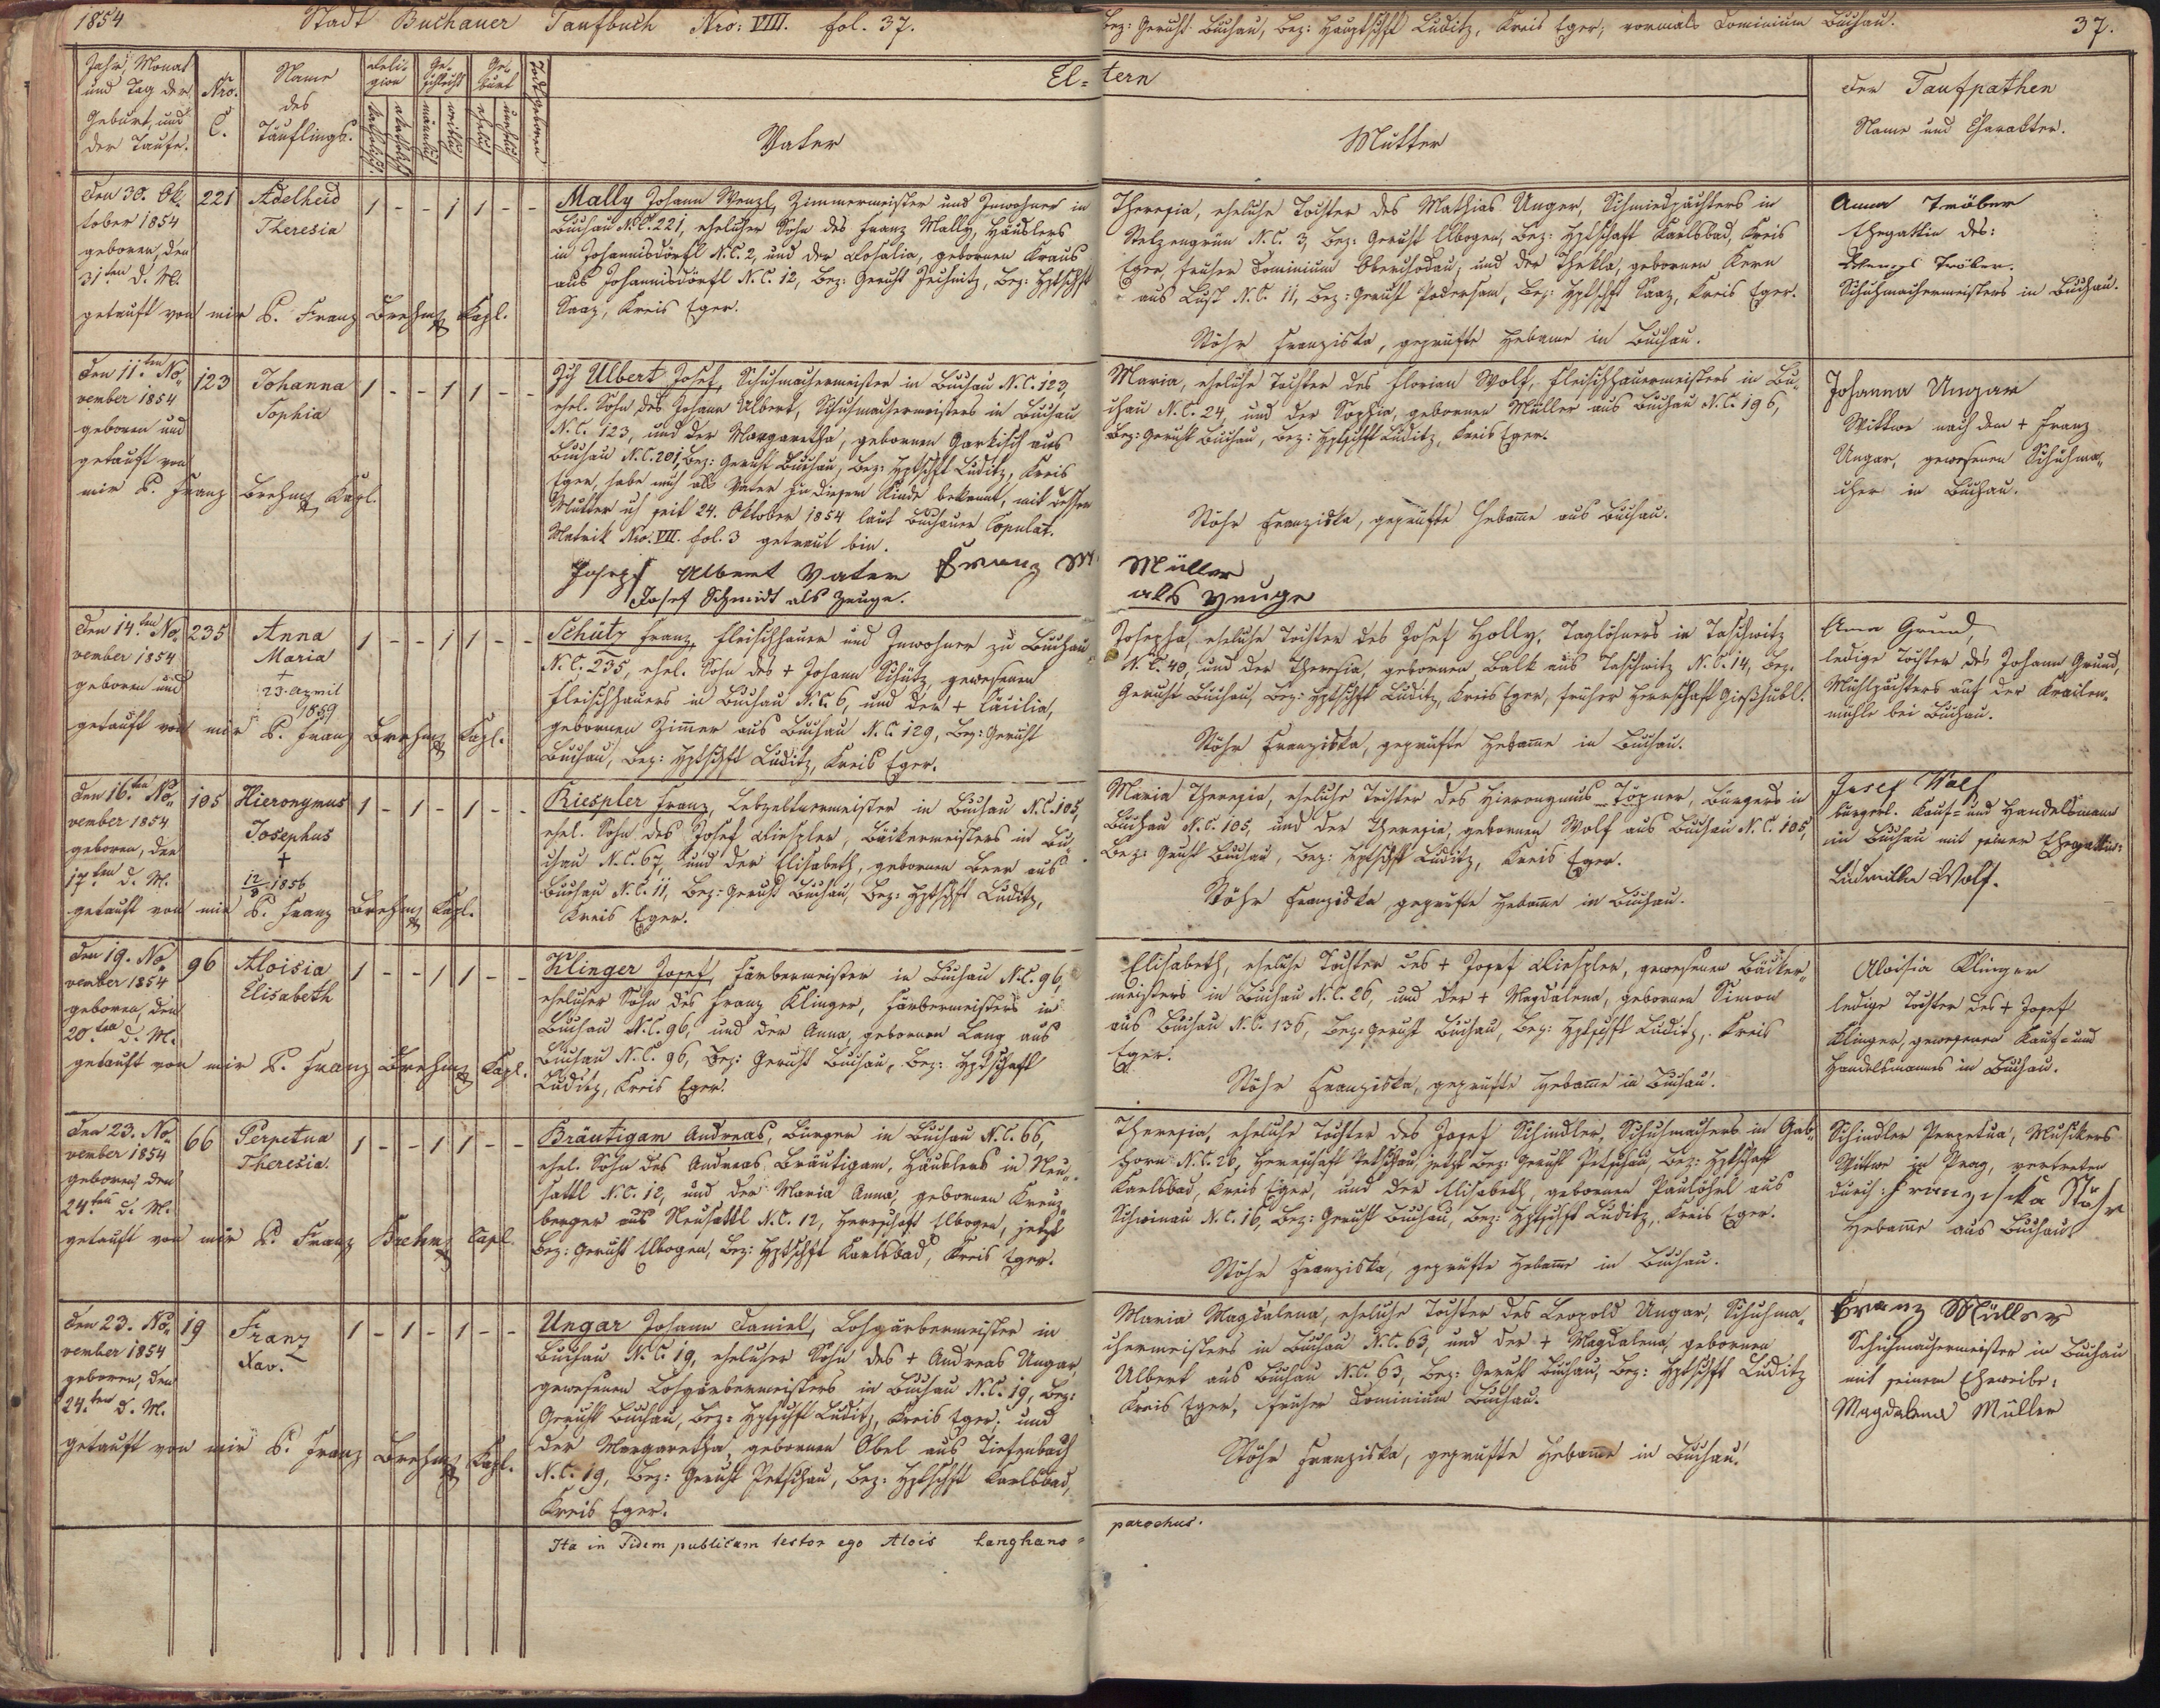 1854. Stadt Buchauer Taufbuch Nro: VIII. fol. 37.
Bez: Gericht Buchau, Bez: Hauptschft Luditz, Kreis Eger, vormals Dominium Buchau. 37.
Jahr, Monat
und Tag der
Geburt, und
der Taufe.
Nro.
C.
Name
des
Täuflings.
Reli-
gion
katholisch
akatholisch
Ge-
schlecht
männlich
weiblich
Ge-
burt
ehelich
unehelich
Todtgeboren
El=tern
Vater
Mutter
der Taufpathen
Name und Charakter.
den 30. Ok-
tober 1854
geboren, den
31ten d. M.
getauft von mir P. Franz Brehm Kapl.
221
Adelheid
Theresia
1 - - 1 1 - -
Mally Johann Wenzl, Zimmermeister und Inwohner in
Buchau N.C. 221, ehelicher Sohn des Franz Mally, Häuslers
in Johannisdörfl N.C. 2, und der Rosalia, gebornen Kraus
aus Johannisdörfl N.C. 12, Bez: Gericht Jechnitz, Bez: Hptschft
Saaz, Kreis Eger.
Theresia, eheliche Tochter des Mathias Unger, Schmiedpächters in
Stelzengrün N.C. 3, Bez: Gericht Elbogen, Bez: Hptschaft Karlsbad, Kreis
Eger, früher Dominium Oberchodau, und der Thekla, gebornen Kern
aus Lust N.C. 11, Bez: Gericht Podersam, Bez: Hptschft Saaz, Kreis Eger.
Stöhr Franziska, geprüfte Hebame in Buchau.
Anna Tröber
Ehegattin des:
Wenzl Tröber.
Schuhmachermeisters in Buchau.
den 11.ten No-
vember 1854
geboren und
getauft von
mir P. Franz Brehm Kapl.
123
Johanna
Sophia
1 - - 1 1 - -
Ich Ulbert Josef, Schuhmachermeister in Buchau N.C. 123,
ehel. Sohn des Johann Ulbert, Schuhmachermeisters in Buchau
N.C. 123, und der Margaretha, gebornen Garkisch aus
Buchau N.C. 201, Bez: Gericht Buchau, Bez: Hptschft Luditz, Kreis
Eger, habe mich als Vater zu diesem Kinde bekennt, mit dessen
Mutter ich seit 24. Oktober 1854 laut Buchauer Copulat.
Matrik Nro. VII. fol. 3 getraut bin.
Joseph Ulbert Vater Franz M. Müller
Josef Schmidt als Zeuge. als Zeuge
Maria, eheliche Tochter des Florian Wolf, Fleischhauermeisters in Bu-
chau N.C. 24, und der Sophia, gebornen Müller aus Buchau N.C. 196,
Bez: Gericht Buchau, Bez: Hptschft Luditz, Kreis Eger.
Stöhr Franziska, geprüfte Hebame aus Buchau.
Johanna Ungar
Wittwe nach dem + Franz
Ungar, gewesenen Schuhma-
cher in Buchau.
den 14.ten No-
vember 1854
geboren und
getauft von mir P. Franz Brehm Kapl.
235
Anna
Maria
+
23. April
1859
1 - - 1 1 - -
Schütz Franz, Fleischhauer und Inwohner zu Buchau
N.C. 235, ehel. Sohn des + Johann Schütz gewesenen
Fleischhauers in Buchau N.C. 6, und der + Cäcilia,
gebornen Zimer aus Buchau N.C. 129, Bez: Gericht
Buchau, Bez: Hptschft Luditz, Kreis Eger.
Josepha, eheliche Tochter des Josef Holly, Taglöhners in Taschwitz
N.C. 40, und der Theresia, gebornen Balk aus Taschwitz N.C. 14, Bez.
Gericht Buchau, Bez: Hptschft Luditz, Kreis Eger, früher Herrschaft Gießhübl.
Stöhr Franziska, geprüfte Hebame in Buchau.
Anna Grund,
ledige Tochter des Johann Grund,
Mühlpächters auf der
mühle bei Buchau.
den 16.ten No-
vember 1854
geboren, den
17ten d. M.
getauft von mir P. Franz Brehm Kapl.
105
Hieronymus
Josephus
+
12/3 1856
1 - 1 - 1 - -
Riespler Franz, Lebzeltermeister in Buchau N.C. 105,
ehel. Sohn des Josef Riespler, Bäckermeisters in Bu-
chau N.C. 67, und der Elisabeth, gebornen Beer aus
Buchau N.C. 11, Bez: Gericht Buchau, Bez: Hptschft Luditz,
Kreis Eger.
Maria Theresia, eheliche Tochter des Hieronymus Töpner, Bürgers in
Buchau N.C. 105, und der Theresia, gebornen Wolf aus Buchau N.C. 105,
Bez: Gericht Buchau, Bez: Hptschft Luditz, Kreis Eger.
Stöhr Franziska, geprüfte Hebame in Buchau.
Josef Wolf
bürgerl. Kauf- und Handelsmann
in Buchau mit seiner Ehegattin:
Ludmilla Wolf.
den 19. No-
vember 1854
geboren, den
20.ten d. M.
getauft von mir P. Franz Brehm Kapl.
96
Aloisia
Elisabeth
1 - - 1 1 - -
Klinger Josef, Färbermeister in Buchau N.C. 96,
ehelicher Sohn des Franz Klinger, Färbermeisters in
Buchau N.C. 96, und der Anna, gebornen Lang aus
Buchau N.C. 96, Bez: Gericht Buchau, Bez: Hptschaft
Luditz, Kreis Eger.
Elisabeth, eheliche Tochter des + Josef Riespler, gewesenen Bäcker-
meisters in Buchau N.C. 26, und der + Magdalena, gebornen Simon
aus Buchau N.C. 136, Bez: Gericht Buchau, Bez: Hptschft Luditz, Kreis
Eger.
Stöhr Franziska, geprüfte Hebame in Buchau.
Aloisia Klinger
ledige Tochter des + Josef
Klinger, gewesenen Kauf- und
Handelsmannes in Buchau.
den 23. No-
vember 1854
geboren, den
24.ten d. M.
getauft von mir P. Franz Brehm Capl.
66
Perpetua
Theresia.
1 - - 1 1 - -
Bräutigam Andreas, Bürger in Buchau N.C. 66,
ehel. Sohn des Andreas Bräutigam, Häuslers in Neu-
sattl N.C. 12, und der Maria Anna, gebornen Kreuz-
berger aus Neusattl N.C. 12, Herrschaft Elbogen, jetzt
Bez: Gericht Elbogen, Bez: Hptschft Karlsbad, Kreis Eger.
Theresia, eheliche Tochter des Josef Schindler, Schuhmachers in Gab-
horn N.C. 26, Herrschaft Petschau, jetzt Bez: Gericht Petschau, Bez: Hptschaft
Karlsbad, Kreis Eger, und der Elisabeth, gebornen Paulöhrl aus
Schönau N.C. 16, Bez: Gericht Buchau, Bez: Hptschft Luditz, Kreis Eger.
Stöhr Franziska, geprüfte Hebame in Buchau.
Schindler Perpetua, Musikers
Wittwe in Prag, vertreten
durch: Franziska Stöhr
Hebame aus Buchau
den 23. No-
vember 1854
geboren, den
24.ten d. M.
getauft von mir P. Franz Brehm Kapl.
19
Franz
Xav.
1 - 1 - 1 - -
Ungar Johann Daniel, Lohgärbermeister in
Buchau N.C. 19, ehelicher Sohn des + Andreas Ungar,
gewesenen Lohgärbermeisters in Buchau N.C. 19, Bez:
Gericht Buchau, Bez: Hptschft Luditz, Kreis Eger; und
der Margaretha, gebornen Obel aus Tiefenbach
N.C. 19, Bez: Gericht Petschau, Bez: Hptschft Karlsbad,
Kreis Eger.
Maria Magdalena, eheliche Tochter des Leopold Ungar, Schuhma-
chermeisters in Buchau N.C. 63, und der + Magdalena, gebornen
Ulbert aus Buchau N.C. 63, Bez: Gericht Buchau, Bez: Hptschft Luditz
Kreis Eger, früher Dominium Buchau.
Stöhr Franziska, geprüfte Hebame in Buchau.
Franz Müller
Schuhmachermeister in Buchau
mit seinem Eheweibe:
Magdalena Müller
Ita in Fidem publicam testor ego Alois Langhans =
parochus.